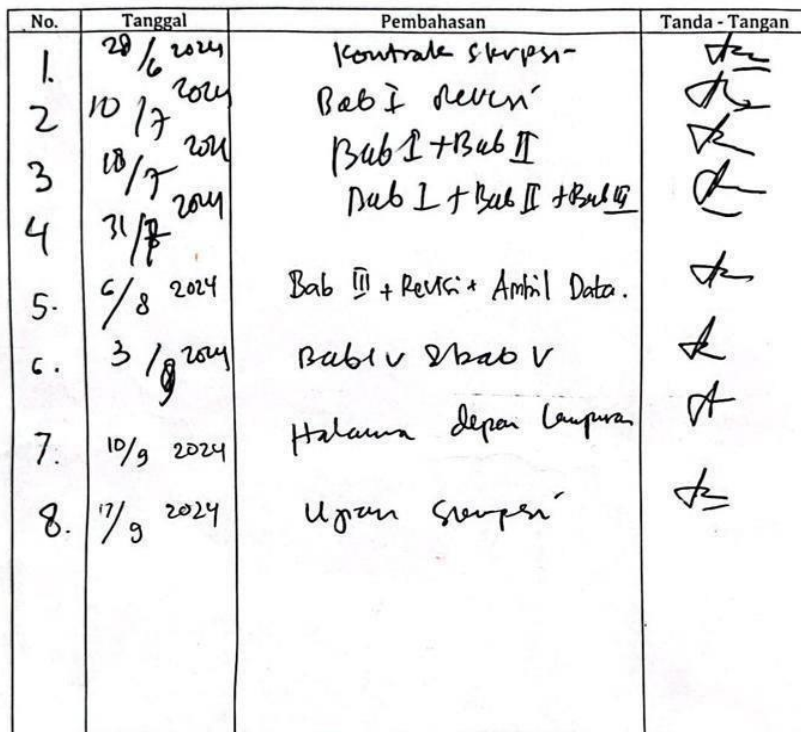 No. Tanggal Pembahasan Tanda - Tangan
1. 28/6 2024 Kontrak Skripsi
2 10/7 2024 Bab I Revisi
3 18/7 2024 Bab I + Bab II
4 31/7 2024 Bab I + Bab II + Bab III
5. 6/8 2024 Bab III + Revisi + Ambil Data.
6. 3/9 2024 Bab IV & bab V
7. 10/9 2024 Halaman depan Lampiran
8. 17/9 2024 Ujian Skripsi